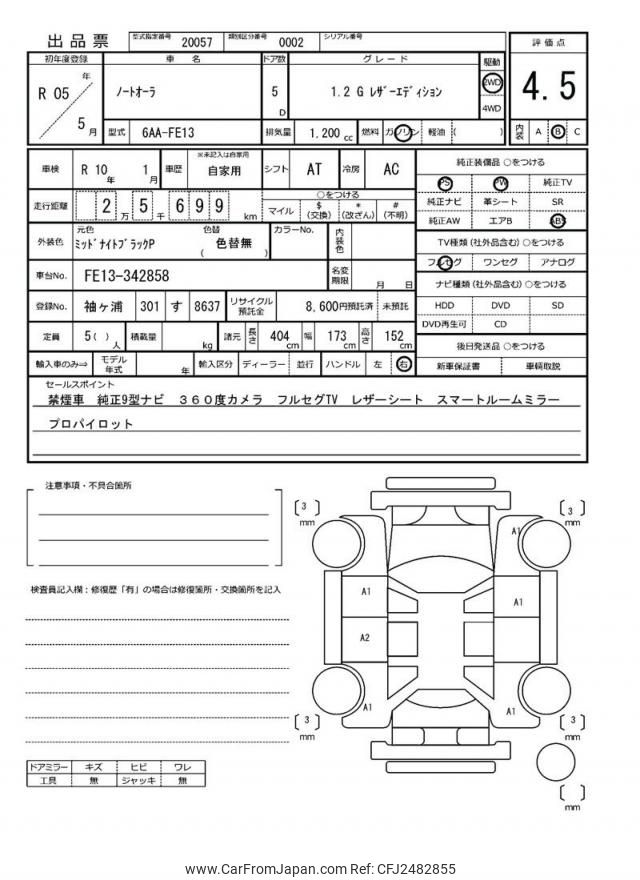 出品票
型式指定番号 20057 類別区分番号 0002 シリアル番号
初年度登録 車名 ドア数 グレード 駆動 評価点
R 05 年 5 月 ノートオーラ 5 D 1.2 G レザーエディション 2WD 4WD 4.5
型式 6AA-FE13 排気量 1.200 cc 燃料 ガソリン 軽油 ( ) 内装 A B C
車検 R 10 年 1 月 車歴 ※未記入は自家用 自家用 シフト AT 冷房 AC
走行距離 2 万 5 千 6 9 9 km ○をつける マイル $ (交換) * (改ざん) # (不明)
外装色 元色 ミッドナイトブラックP 色替 ( 色替無 ) カラーNo. 内装色
車台No. FE13-342858 名変期限 月 日
登録No. 袖ヶ浦 301 す 8637 リサイクル預託金 8,600円預託済 未預託
定員 5( ) 人 積載量 kg 諸元 長さ 404 cm 幅 173 cm 高さ 152 cm
輸入車のみ⇒ モデル年式 年 輸入区分 ディーラー 並行 ハンドル 左 右
純正装備品 ○をつける
PS PW 純正TV
純正ナビ 革シート SR
純正AW エアB ABS
TV種類 (社外品含む) ○をつける
フルセグ ワンセグ アナログ
ナビ種類 (社外品含む) ○をつける
HDD DVD SD
DVD再生可 CD
後日発送品 ○をつける
新車保証書 車輌取説
セールスポイント
禁煙車 純正9型ナビ 360度カメラ フルセグTV レザーシート スマートルームミラー
プロパイロット
注意事項・不具合箇所
検査員記入欄：修復歴「有」の場合は修復箇所・交換箇所を記入
ドアミラー キズ ヒビ ワレ
工具 無 ジャッキ 無
3 mm
3 mm
A1
A1
A1
A2
A1
A1
3 mm
3 mm
mm
www.CarFromJapan.com Ref: CFJ2482855